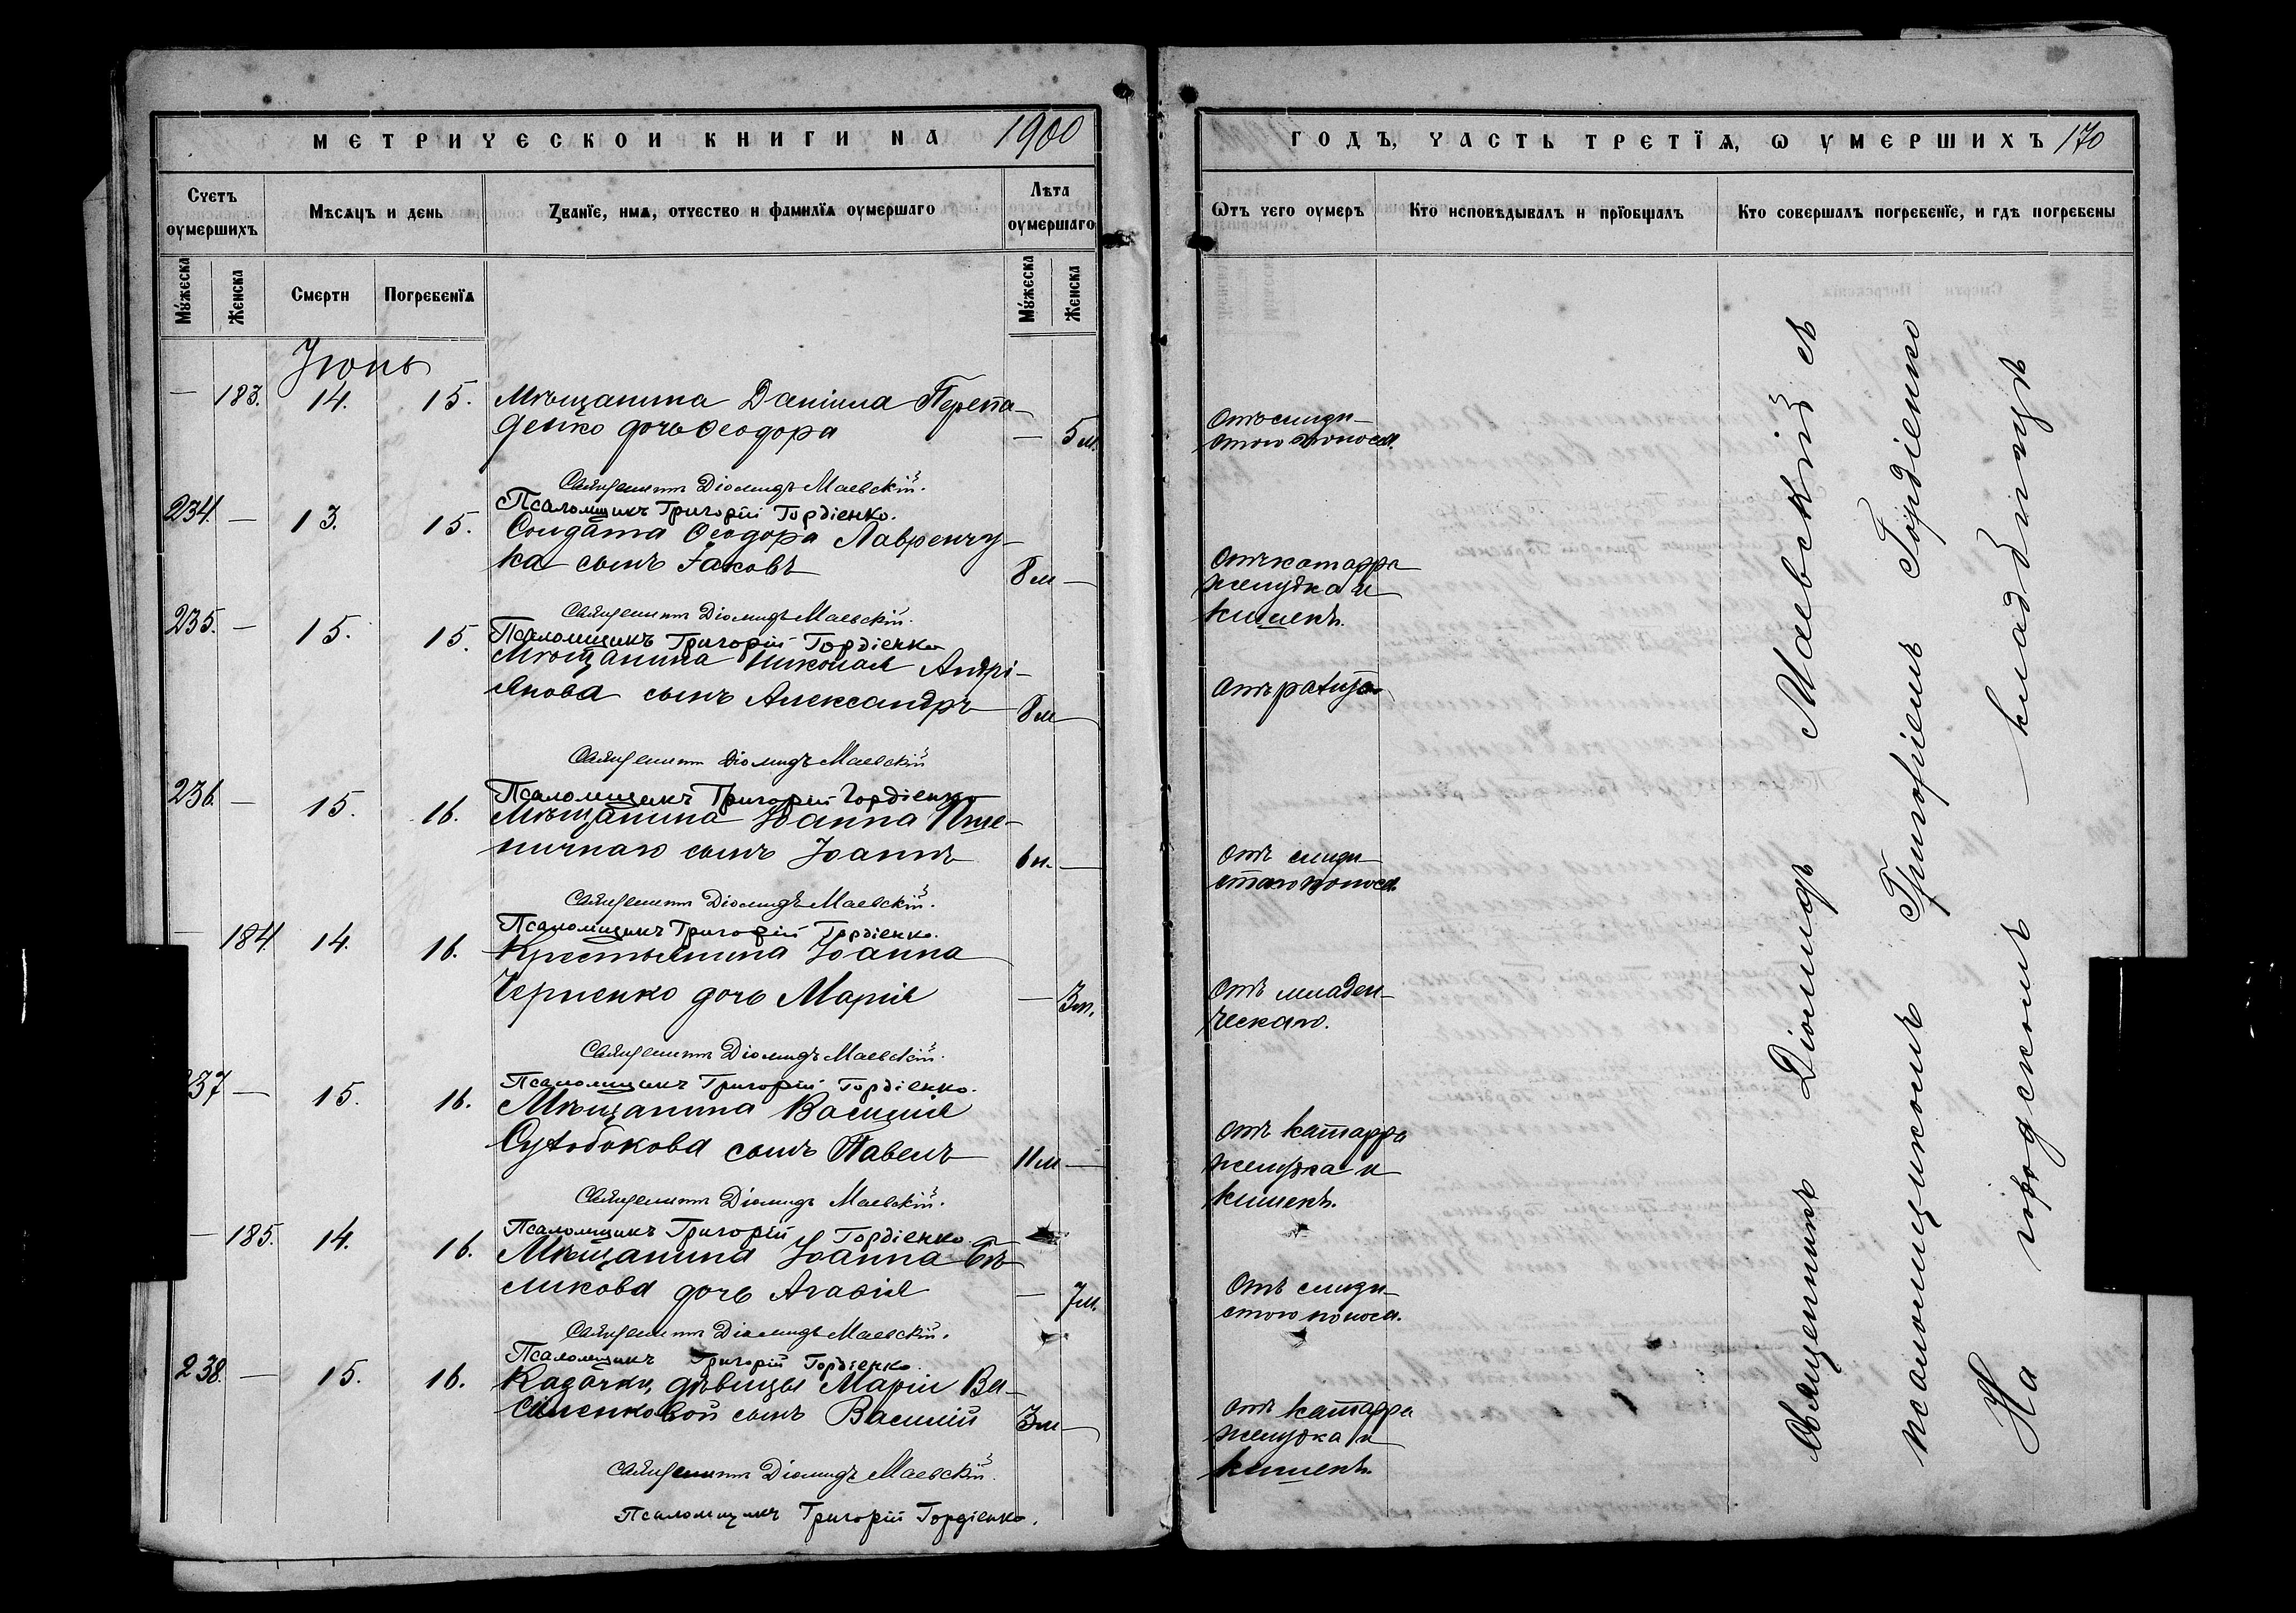 МЕТРИЧЕСКОИ КНИГИ НА 1900
Счетъ оумершихъ
Мѣсяцъ и день
Званїе, имѧ, отчество и фамилїѧ оумершаго
Лѣта оумершаго
Мꙋжеска
Женска
Смерти
Погребенїѧ
Мꙋжеска
Женска
Іюнь
— 183. 14. 15. Мѣщанина Даніила Перепа-
денко дочь Ѳеодора — 5 м.
Священникъ Діомидъ Маевскій.
Псаломщикъ Григорій Гордіенко.
234. — 13. 15. Солдата Ѳеодора Лавренчу-
ка сынъ Іаковъ 8 м —
Священникъ Діомидъ Маевскій.
Псаломщикъ Григорій Гордіенко
235. — 15. 15. Мѣщанина Николая Андрі-
янова сынъ Александръ 8 м —
Священникъ Діомидъ Маевскій
Псаломщикъ Григорій Гордіенко
236. — 15. 16. Мѣщанина Іоанна Пше-
ничнаго сынъ Іоаннъ —
Священникъ Діомидъ Маевскій.
Псаломщикъ Григорій Гордіенко.
— 184. 14. 16. Крестьянина Іоанна
Черненко дочь Марія —
Священникъ Діомидъ Маевскій.
Псаломщикъ Григорій Гордіенко.
237 — 15. 16. Мѣщанина Василія
сынъ Павелъ 11 м —
Священникъ Діомидъ Маевскій.
Псаломщикъ Григорій Гордіенко
— 185. 14. 16. Мѣщанина Іоанна Бѣ-
ликова дочь Агафія — 7 м.
Священникъ Діомидъ Маевскій.
Псаломщикъ Григорій Гордіенко
238. — 15. 16. Казачки, дѣвицы Маріи Ва-
силенковой сынъ Василій 3 м —
Священникъ Діомидъ Маевскій.
Псаломщикъ Григорій Гордіенко.
ГОДЪ, ЧАСТЬ ТРЕТЇѦ, Ѡ УМЕРШИХЪ 170
Ѿтъ чего оумеръ
Кто исповѣдывалъ и прїобщалъ
Кто совершалъ погребенїе, и гдѣ погребены
Отъ слизи-
стого поноса.
Отъ катарра
желудка и
кишекъ.
Отъ
Отъ слизи-
стаго поноса.
Отъ младен-
ческаго.
Отъ катарра
желудка и
кишекъ.
Отъ слизи-
стого поноса.
Отъ катарра
желудка и
кишекъ.
Священникъ Діомидъ Маевскій съ
псаломщикомъ Григоріемъ Гордіенко
На городскомъ кладбищѣ